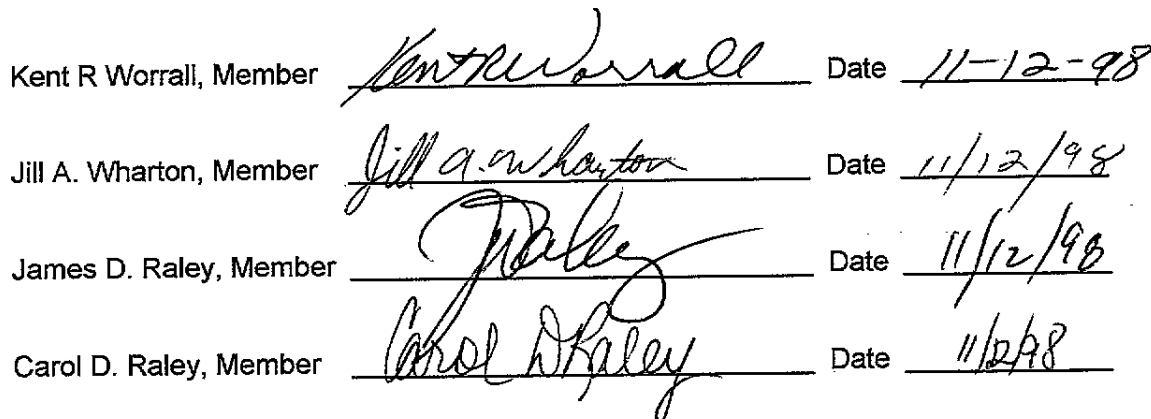 Kent R Worrall, Member Kent R Worrall Date 11-12-98
Jill A. Wharton, Member Jill A. Wharton Date 11/12/98
James D. Raley, Member JD Raley Date 11/12/98
Carol D. Raley, Member Carol D Raley Date 11/12/98